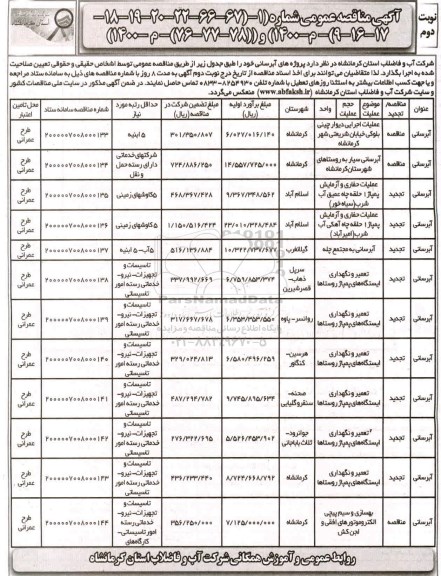 نوبت دوم
آگهی مناقصه عمومی شماره (۱-(۶۷-۶۶-۲۲-۲۰-۱۹-۱۸-
۱۷-۱۶-۹) -م-۱۴۰۰) و ((۷۸-۷۷-۷۶) -م-۱۴۰۰)
شرکت آب و فاضلاب استان کرمانشاه در نظر دارد پروژه های آبرسانی خود را طبق جدول زیر از طریق مناقصه عمومی توسط اشخاص حقیقی و حقوقی تعیین صلاحیت
شده به اجرا بگذارد. لذا متقاضیان می توانند برای اخذ اسناد مناقصه از تاریخ درج نوبت دوم آگهی به مدت ۸ روز با شماره مناقصه های ذیل به سامانه ستاد مراجعه
و سایت شرکت آب و فاضلاب استان کرمانشاه (www.abfaksh.ir) منعکس می گردد.
عنوان مناقصه موضوع عملیات حجم عملیات واحد شهرستان مبلغ برآورد اولیه (ریال) مبلغ تضمین شرکت در مناقصه (ریال) حداقل رتبه مورد نیاز شماره مناقصه سامانه ستاد محل تامین اعتبار
آبرسانی مناقصه عملیات اجرایی دیوار چینی بلوکی خیابان شریعتی شهر کرمانشاه کرمانشاه ۶/۰۲۷/۰۱۶/۱۴۰ ۳۰۱/۳۵۰/۸۰۷ ۵ ابنیه ۲۰۰۰۰۰۷۰۰۸۰۰۰۱۳۳ طرح عمرانی
آبرسانی تجدید آبرسانی سیار به روستاهای شهرستان کرمانشاه کرمانشاه ۱۴/۵۵۷/۷۲۵/۰۰۰ ۷۲۴/۸۸۶/۲۵۰ شرکتهای خدماتی دارای رسته حمل و نقل ۲۰۰۰۰۰۷۰۰۸۰۰۰۱۳۴ طرح عمرانی
آبرسانی تجدید عملیات حفاری و آزمایش پمپاژ ۱ حلقه چاه عمیق آب شرب (سیاه خور) اسلام آباد ۹/۳۶۷/۳۴۸/۵۶۲ ۴۶۸/۳۶۷/۴۲۸ ۵ کاوشهای زمینی ۲۰۰۰۰۰۷۰۰۸۰۰۰۱۳۵ طرح عمرانی
آبرسانی تجدید عملیات حفاری و آزمایش پمپاژ ۱ حلقه چاه آهکی آب شرب (امیرآباد) اسلام آباد ۲۳/۰۱۰/۳۶۸/۴۸۴ ۱/۱۵۰/۵۱۶/۴۲۴ ۵ کاوشهای زمینی ۲۰۰۰۰۰۷۰۰۸۰۰۰۱۳۶ طرح عمرانی
آبرسانی تجدید آبرسانی به مجتمع چله گیلانغرب ۱۰/۳۲۲/۷۳۷/۶۷۷ ۵۱۶/۱۳۶/۸۸۴ ۵ آب - ۵ ابنیه ۲۰۰۰۰۰۷۰۰۸۰۰۰۱۳۷ طرح عمرانی
آبرسانی تجدید تعمیر و نگهداری ایستگاههای پمپاژ روستاها سرپل ذهاب- قصرشیرین ۶/۷۵۹/۸۵۳/۳۷۴ ۳۳۷/۹۹۲/۶۶۹ تاسیسات و تجهیزات-نیرو- خدماتی رسته امور تاسیساتی ۲۰۰۰۰۰۷۰۰۸۰۰۰۱۳۸ طرح عمرانی
آبرسانی تجدید تعمیر و نگهداری ایستگاههای پمپاژ روستاها روانسر-پاوه ۶/۳۵۳/۳۵۳/۵۵۰ ۳۱۷/۶۶۷/۶۷۸ تاسیسات و تجهیزات-نیرو- خدماتی رسته امور تاسیساتی ۲۰۰۰۰۰۷۰۰۸۰۰۰۱۳۹ طرح عمرانی
آبرسانی تجدید تعمیر و نگهداری ایستگاههای پمپاژ روستاها هرسین- کنگاور ۶/۵۸۰/۴۹۶/۲۵۹ ۳۲۹/۰۲۴/۸۱۳ تاسیسات و تجهیزات-نیرو- خدماتی رسته امور تاسیساتی ۲۰۰۰۰۰۷۰۰۸۰۰۰۱۴۰ طرح عمرانی
آبرسانی تجدید تعمیر و نگهداری ایستگاههای پمپاژ روستاها صحنه- سنقر و کلیایی ۹/۷۴۵/۸۹۵/۶۳۴ ۴۸۷/۲۹۴/۷۸۲ تاسیسات و تجهیزات-نیرو- خدماتی رسته امور تاسیساتی ۲۰۰۰۰۰۷۰۰۸۰۰۰۱۴۱ طرح عمرانی
آبرسانی تجدید تعمیر و نگهداری ایستگاههای پمپاژ روستاها جوانرود- ثلاث باباجانی ۵/۵۲۶/۴۵۳/۹۰۲ ۲۷۶/۳۲۲/۶۹۵ تاسیسات و تجهیزات-نیرو- خدماتی رسته امور تاسیساتی ۲۰۰۰۰۰۷۰۰۸۰۰۰۱۴۲ طرح عمرانی
آبرسانی تجدید تعمیر و نگهداری ایستگاههای پمپاژ روستاها کرمانشاه ۸/۷۲۴/۶۶۸/۷۹۲ ۴۳۶/۲۳۳/۴۴۰ تاسیسات و تجهیزات-نیرو- خدماتی رسته امور تاسیساتی ۲۰۰۰۰۰۷۰۰۸۰۰۰۱۴۳ طرح عمرانی
آبرسانی مناقصه بهسازی و سیم پیچی الکتروموتورهای افقی و لجن کش کرمانشاه ۷/۱۲۵/۰۰۰/۰۰۰ ۳۵۶/۲۵۰/۰۰۰ تاسیسات و تجهیزات-نیرو- خدماتی رسته امور تاسیساتی- کارگاههای ۲۰۰۰۰۰۷۰۰۸۰۰۰۱۴۴ طرح عمرانی
روابط عمومی و آموزش همگانی شرکت آب و فاضلاب استان کرمانشاه